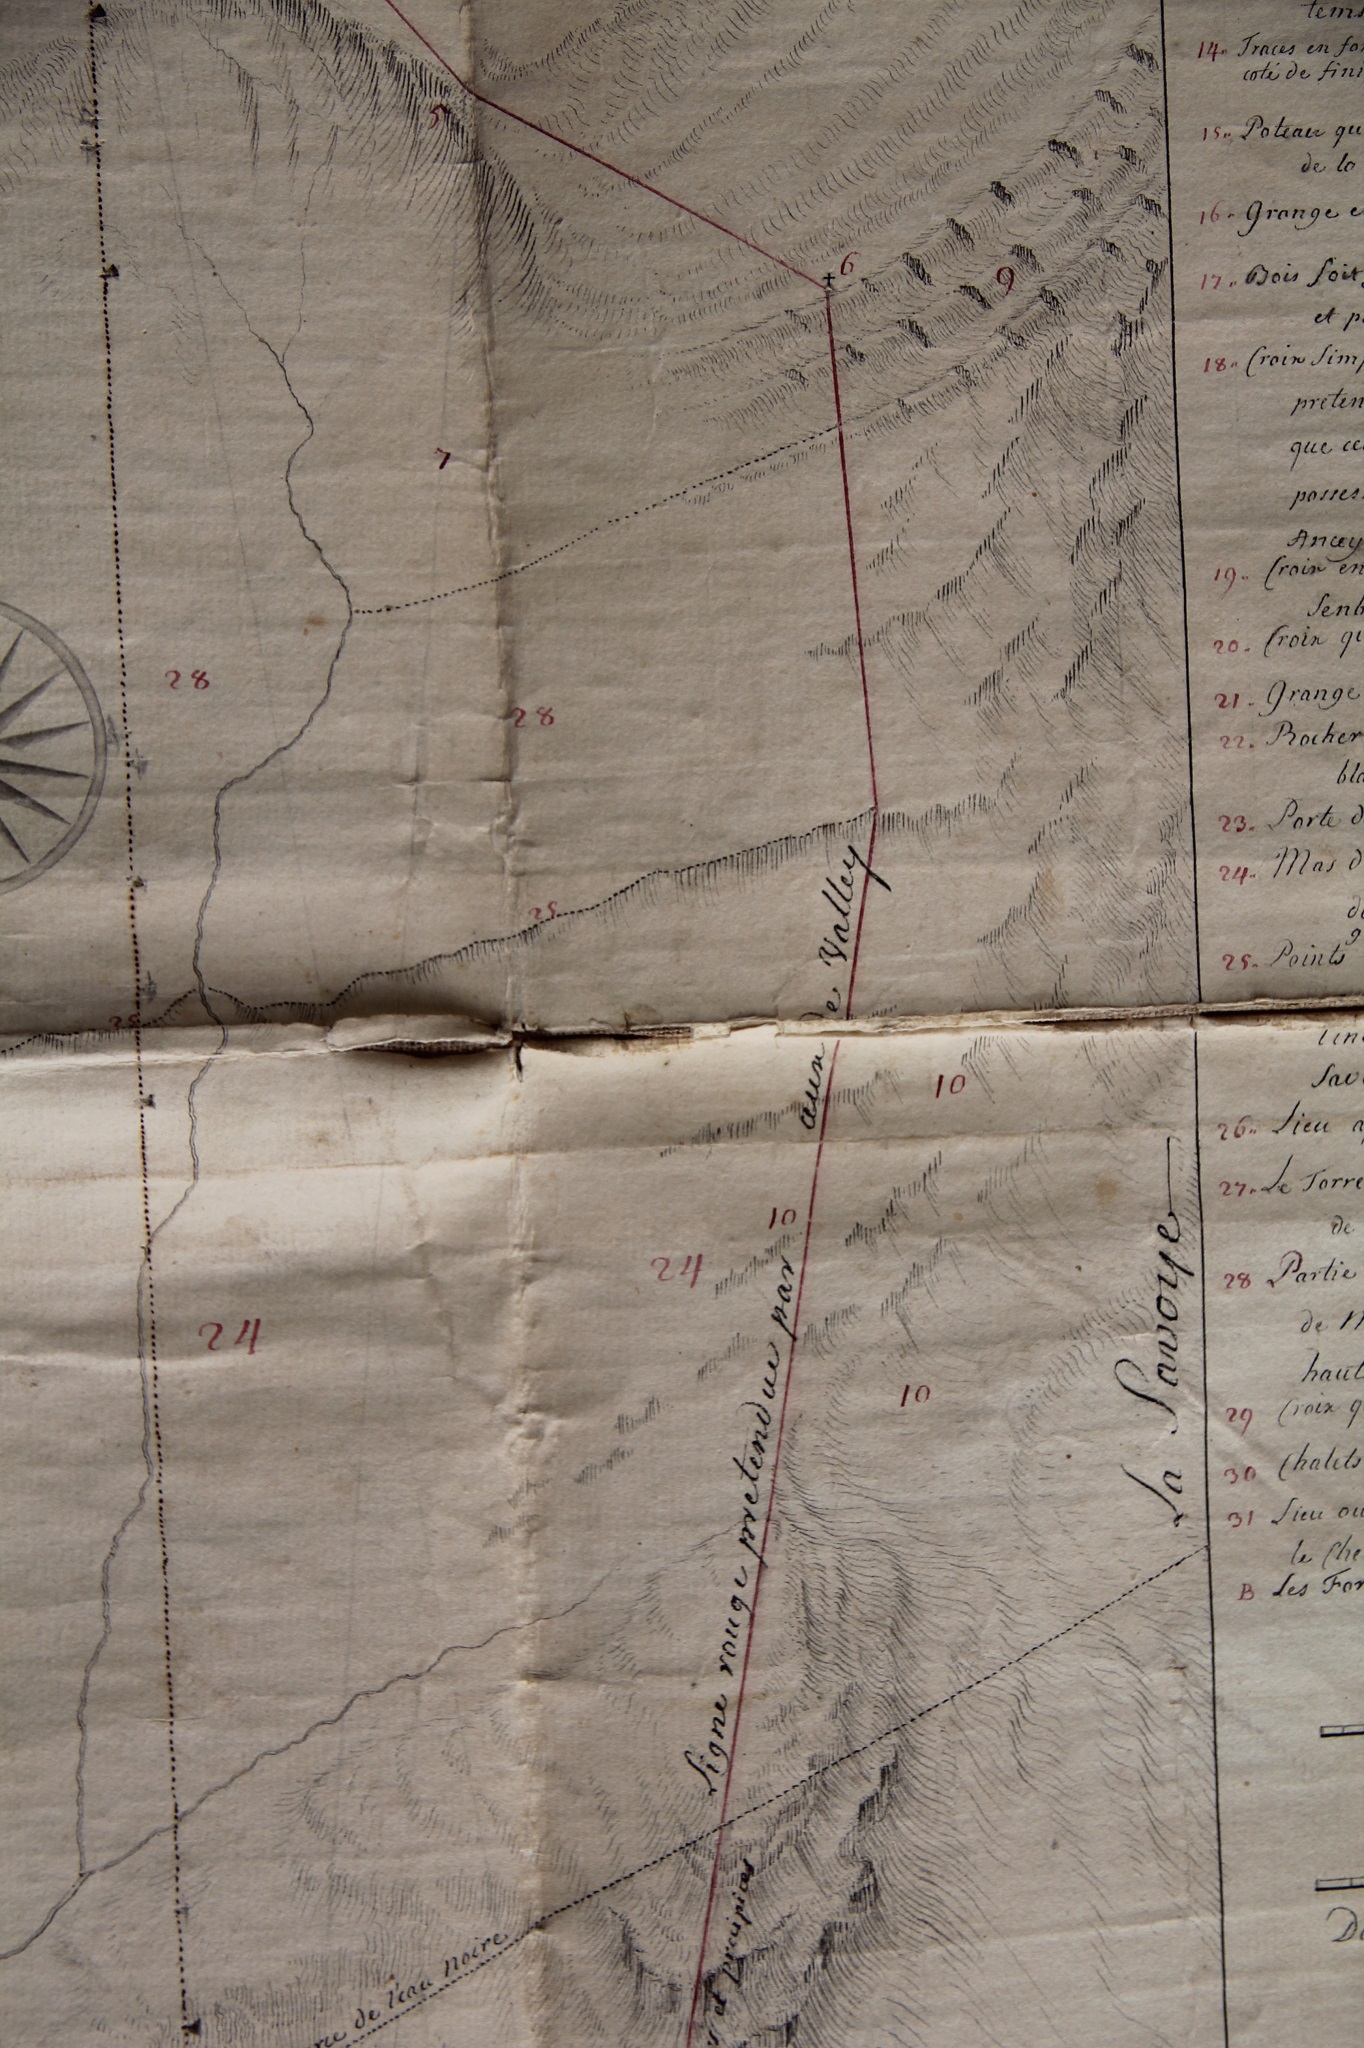 5
6
9
7
28
28
25
25
10
10
24
24
10
Ligne rouge pretendue par aux de Valley
La Savoye
de l'eau noire
et Precipices
tems
14. Traces en
coté de
15. Poteau qu
de la
16. Grange e
17. Bois soit
et p
18. Croix Simp
preten
que ce
posses
Ancey
19. Croix en
Senb
20. Croix qu
21. Grange
22. Rocher
bla
23. Porte d
24. Mas d
de
25. Points
Sav
26. Lieu a
27. Le Torre
de
28 Partie
de M
haut
29 Croix q
30 Chalets
31 Lieu ou
le Che
B Les For